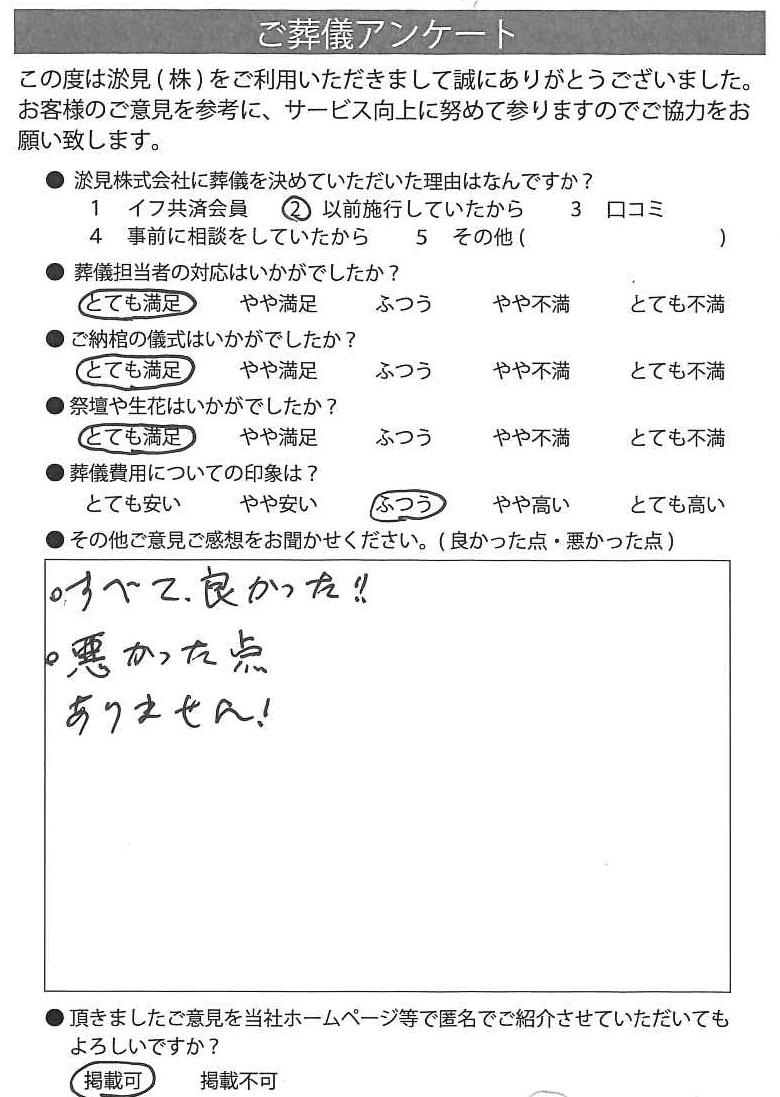 ご葬儀アンケート
この度は淤見(株)をご利用いただきまして誠にありがとうございました。
お客様のご意見を参考に、サービス向上に努めて参りますのでご協力をお
願い致します。
● 淤見株式会社に葬儀を決めていただいた理由はなんですか?
1 イフ共済会員 ② 以前施行していたから 3 口コミ
4 事前に相談をしていたから 5 その他( )
● 葬儀担当者の対応はいかがでしたか?
とても満足 やや満足 ふつう やや不満 とても不満
● ご納棺の儀式はいかがでしたか?
とても満足 やや満足 ふつう やや不満 とても不満
● 祭壇や生花はいかがでしたか?
とても満足 やや満足 ふつう やや不満 とても不満
● 葬儀費用についての印象は?
とても安い やや安い ふつう やや高い とても高い
● その他ご意見ご感想をお聞かせください。(良かった点・悪かった点)
○すべて、良かった!!
○悪かった点
ありません!
● 頂きましたご意見を当社ホームページ等で匿名でご紹介させていただいても
よろしいですか?
掲載可 掲載不可